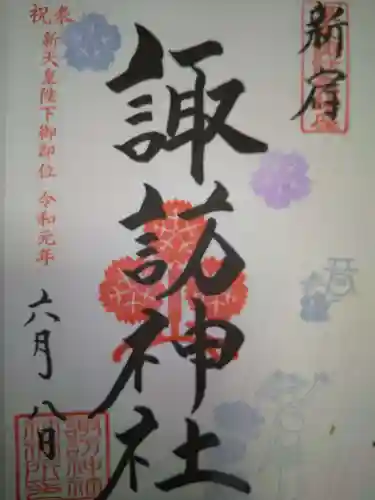 新宿
諏訪神社
奉祝
新天皇陛下御即位 令和元年
六月八日